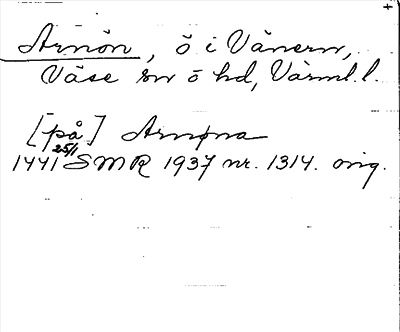 Arnön, ö i Vänern,
Väse sn o hd, Värml. l.
[på] Arnøna
1441 25/1 SMR 1937 nr. 1314. orig.